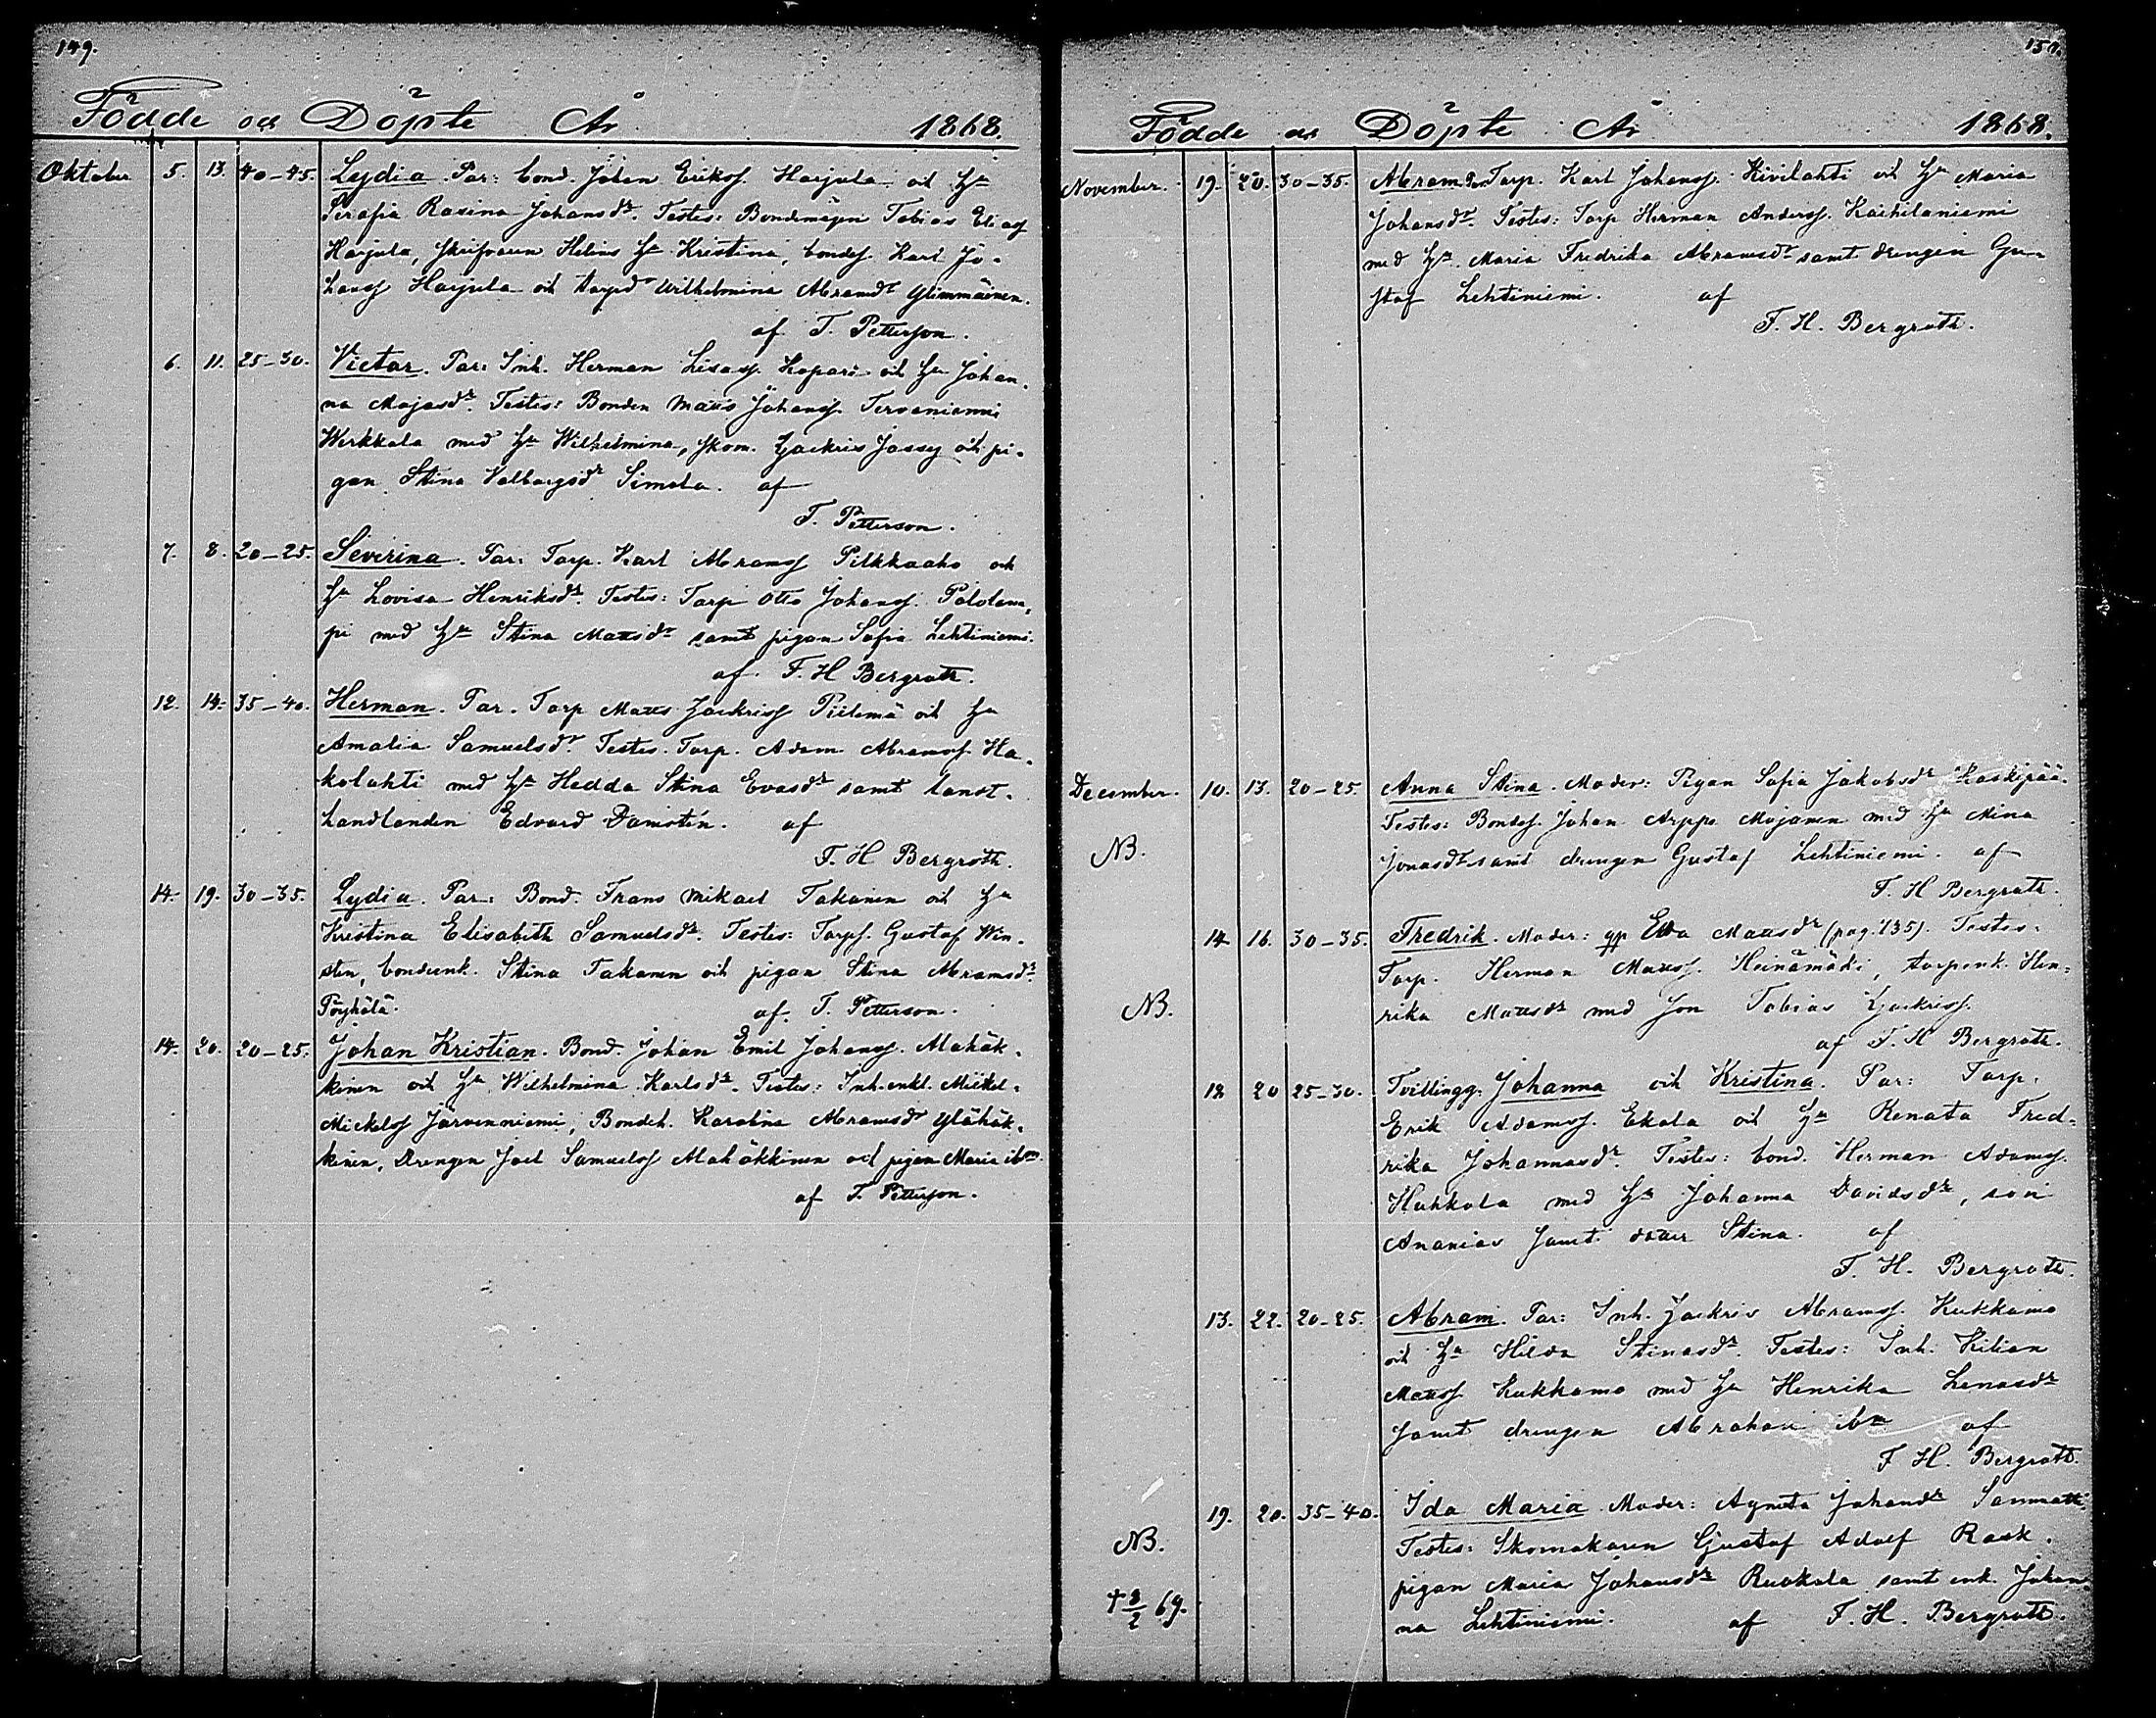 149.
Födde och Döpte År 1868.
Oktober 5. 13. 40-45. Lydia. Par: bond. Johan Erikss. Harjula och Hu
Serafia Rosina Johansdr. Testes: Bondemågen Tobias Eliass
Harjula, Skrifvaren Helins Hu Kristina, bondes. Karl Jo-
hanss Harjula och torpd. Wilhelmina Abramdr Ylimmäinen.
af T. Petterson.
6. 11. 25-30. Victor. Par: Inh. Herman Lisass. Kopari och Hu Johan-
na Majasdr. Testes: Bonden Matts Johanss. Tervaniemi
Werkkala med Hu Wilhelmina, skom. Zackris Jassy och pi-
gan Stina Valborgsdr Simola. af
T. Petterson.
7. 8. 20-25. Severina. Par: Torp. Karl Abramss Pilkkaaho och
Hu Lovisa Henriksdr. Testes: Torp Otto Johanss. Pololam-
pi med Hu Stina Mattsdr samt pigan Sofia Lehtiniemi.
af F. H Bergroth.
12. 14. 35-40. Herman. Par. Torp Matts Zackriss Piilemä och Hu
Amalia Samuelsdr. Testes. Torp. Adam Abramss. Ha-
kolahti med Hu Hedda Stina Evasdr samt lanst-
handlanden Edvard Damstén. af
F. H Bergroth.
14. 19. 30-35. Lydia. Par: Bond. Frans Mikael Takanen och Hu
Kristina Elisabeth Samuelsdr. Testes: Torps. Gustaf Win-
sten, bondeenk. Stina Takanen och pigan Stina Abramsdr
Pöyhölä. af. T. Petterson.
14. 20. 20-25. Johan Kristian. Bond. Johan Emil Johanss. Alahäk-
kinen och Hu Wilhelmina Karlsdr. Testes: Inh.enkl. Mickel
Mickelss Järvenniemi, Bondeh. Karolina Abramsdr Ylähäk-
kinen, Drengen Joel Samuelss Alahäkkinen och pigan Maria ibm.
af T. Petterson.
150.
Födde och Döpte År 1868.
November. 19. 20. 30-35. Abram. Par. Torp. Karl Johanss. Kivilahti och Hu Maria
Johansdr. Testes: Torp Herman Anderss. Kaihilaniemi
med Hu. Maria Fredrika Abramsdr samt drengen Gu-
staf Lehtiniemi. af
F. H. Bergroth.
December. 10. 13. 20-25. Anna Stina. Moder: Pigan Sofia Jakobsdr Kaskipää.
Testes: Bondes. Johan Arppe Mojanen med Hu Mina
NB. Jonasdr samt drengen Gustaf Lehtiniemi. af
F. H Bergroth.
14 16. 30-35. Fredrik. Moder: qp Eva Mattsdr (pag. 135). Testes:
Torp. Herman Matss. Heinämäki, torpenk. Hen-
NB. rika Mattsdr med son Tobias Zackriss.
af F. H Bergroth.
12 20 25-30. Tvillingg: Johanna och Kristina. Par: Torp.
Erik Adamss. Ekola och Hu Renata Fred-
rika Johannasdr. Testes: bond. Herman Adamss.
Huhkola med Hu Johanna Davidsdr, son
Ananias samt dotter Stina. af
F. H. Bergroth.
13. 22. 20-25. Abram. Par: Inh. Zackris Abramss. Kukkamo
och Hu Hilda Stinasdr. Testes: Inh. Kilian
Matss Kukkamo med Hu Henrika Lenasdr
samt drengen Abraham ibm af
F H. Bergroth.
19. 20. 35-40. Ida Maria. Moder: Agneta Johansdr Sanmatti
NB. Testes: Skomakaren Gustaf Adolf Rask.
pigan Maria Johansdr Ruokola samt enk. Johan-
† 3/2 69. na Lehtiniemi. af F. H. Bergroth.